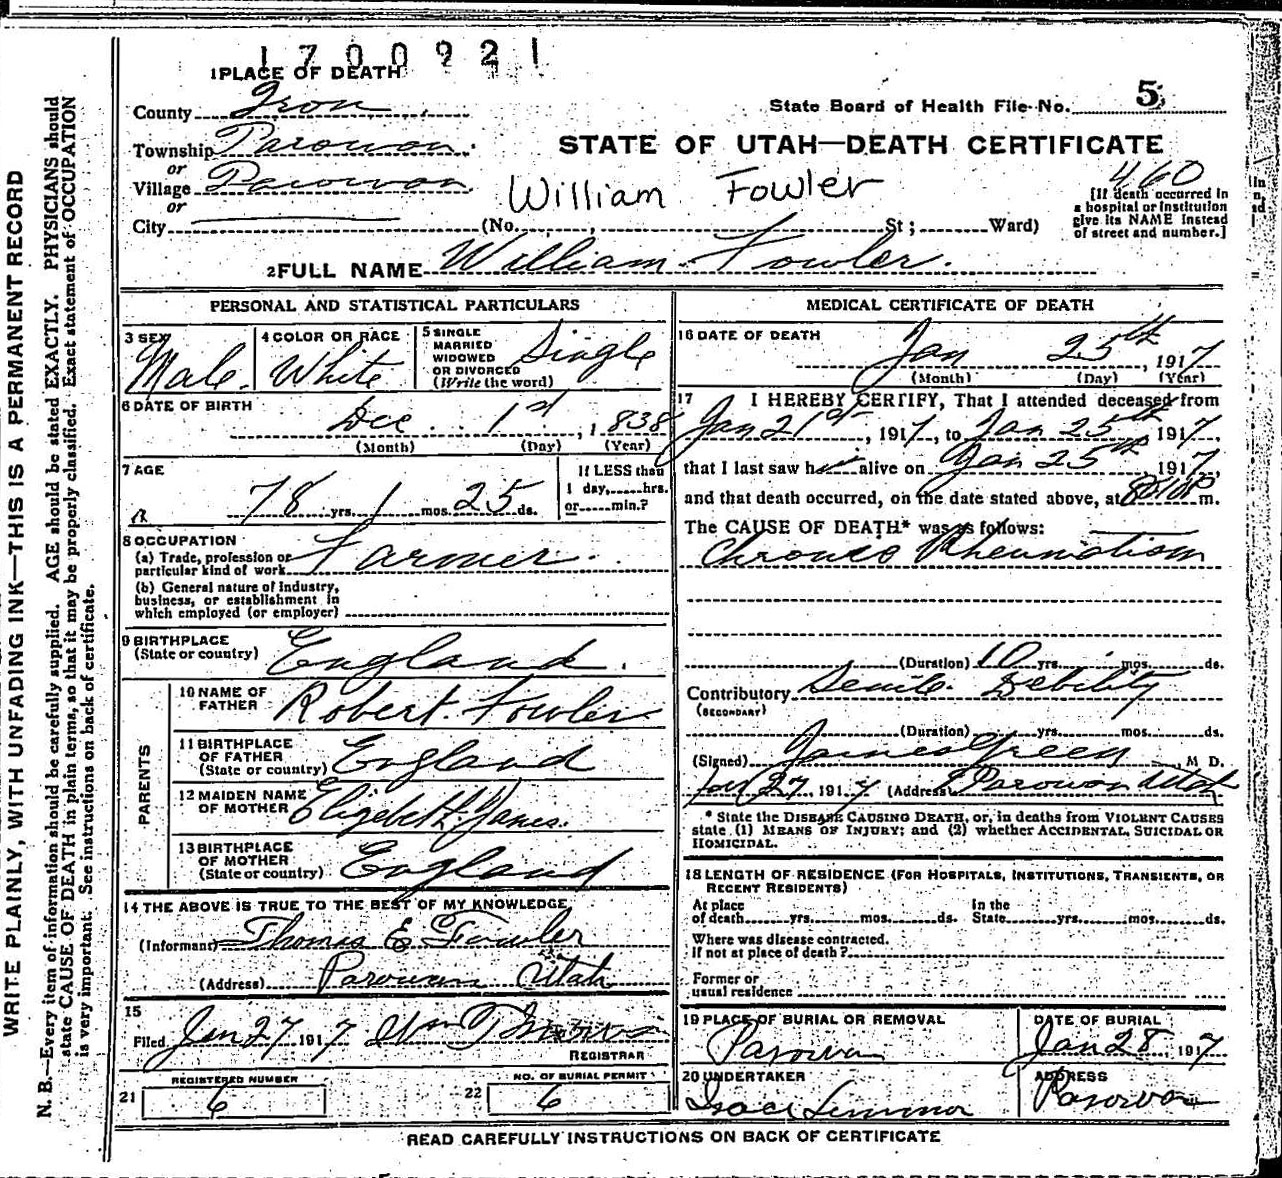 1700921
1 PLACE OF DEATH
County Iron
State Board of Health File No. 5
Township Parowan
STATE OF UTAH—DEATH CERTIFICATE
or
Village Parowan
William Fowler
460
or
City (No. St; Ward)
[If death occurred in
a hospital or institution
give its NAME instead
of street and number.]
2 FULL NAME William Fowler.
PERSONAL AND STATISTICAL PARTICULARS
3 SEX
Male.
4 COLOR OR RACE
White
5 SINGLE
MARRIED
WIDOWED
OR DIVORCED
(Write the word)
Single
6 DATE OF BIRTH
Dec 1st, 1838
(Month) (Day) (Year)
7 AGE
78 yrs. 1 mos. 25 ds.
If LESS than
1 day, hrs.
or min.?
8 OCCUPATION
(a) Trade, profession or
particular kind of work Farmer.
(b) General nature of industry,
business, or establishment in
which employed (or employer)
9 BIRTHPLACE
(State or country) England.
PARENTS
10 NAME OF
FATHER Robert Fowler
11 BIRTHPLACE
OF FATHER
(State or country) England
12 MAIDEN NAME
OF MOTHER Elizebeth James.
13 BIRTHPLACE
OF MOTHER
(State or country) England
14 THE ABOVE IS TRUE TO THE BEST OF MY KNOWLEDGE
(Informant) Thomas E Fowler
(Address) Parowan Utah
15
Filed Jan 27 1917 Wm
REGISTRAR
21 REGISTERED NUMBER
6
22 NO. OF BURIAL PERMIT
6
MEDICAL CERTIFICATE OF DEATH
16 DATE OF DEATH
Jan 25th, 1917
(Month) (Day) (Year)
17 I HEREBY CERTIFY, That I attended deceased from
Jan 21st, 1917, to Jan 25th 1917,
that I last saw h alive on Jan 25th, 1917,
and that death occurred, on the date stated above, at m.
The CAUSE OF DEATH* was as follows:
Chronic Rheumatism
(Duration) 10 yrs. mos. ds.
Contributory Senile Debility
(SECONDARY)
(Duration) yrs. mos. ds.
(Signed) James Green, M D.
Jan 27, 1917 (Address) Parowan Utah
* State the DISEASE CAUSING DEATH, or, in deaths from VIOLENT CAUSES
state (1) MEANS OF INJURY; and (2) whether ACCIDENTAL, SUICIDAL OR
HOMICIDAL.
18 LENGTH OF RESIDENCE (FOR HOSPITALS, INSTITUTIONS, TRANSIENTS, OR
RECENT RESIDENTS)
At place
of death yrs. mos. ds.
In the
State yrs. mos. ds.
Where was disease contracted.
If not at place of death?
Former or
usual residence
19 PLACE OF BURIAL OR REMOVAL
Parowan
DATE OF BURIAL
Jan 28, 1917
20 UNDERTAKER
ADDRESS
Parowan
READ CAREFULLY INSTRUCTIONS ON BACK OF CERTIFICATE
WRITE PLAINLY, WITH UNFADING INK—THIS IS A PERMANENT RECORD
N. B.—Every item of information should be carefully supplied. AGE should be stated EXACTLY. PHYSICIANS should
state CAUSE OF DEATH in plain terms, so that it may be properly classified. Exact statement of OCCUPATION
is very important. See instructions on back of certificate.